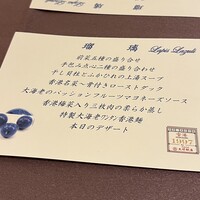 瑠璃 Lapis Lazuli
前菜五種の盛り合せ
手巻み点心二種の盛り合わせ
干し貝柱とふかひれの上湯スープ
香港名菜～釜付きローストダック
大海老のパッションフルーツマヨネーズソース
香港梅菜入り三枚肉の柔らか蒸し
特製大海老ワンタン香港麺
本日のデザート
1997